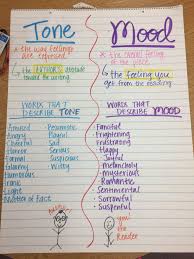 Tone
* the way feelings are expressed
* the AUTHOR'S attitude toward the writing.
WORDS THAT DESCRIBE TONE
Amused Pessimistic
Angry Playful
Cheerful Sad
Horror Serious
Formal Suspicious
Gloomy Witty
Humorous
Frank
Light
Matter of Fact
Mood
* the overall feeling of the piece.
* the feeling you get from the reading
WORDS THAT DESCRIBE MOOD
Fanciful
Frightening
Frustrating
Happy
Joyful
Melancholy
Mysterious
Romantic
Sentimental
Sorrowful
Suspenful
you! the Reader